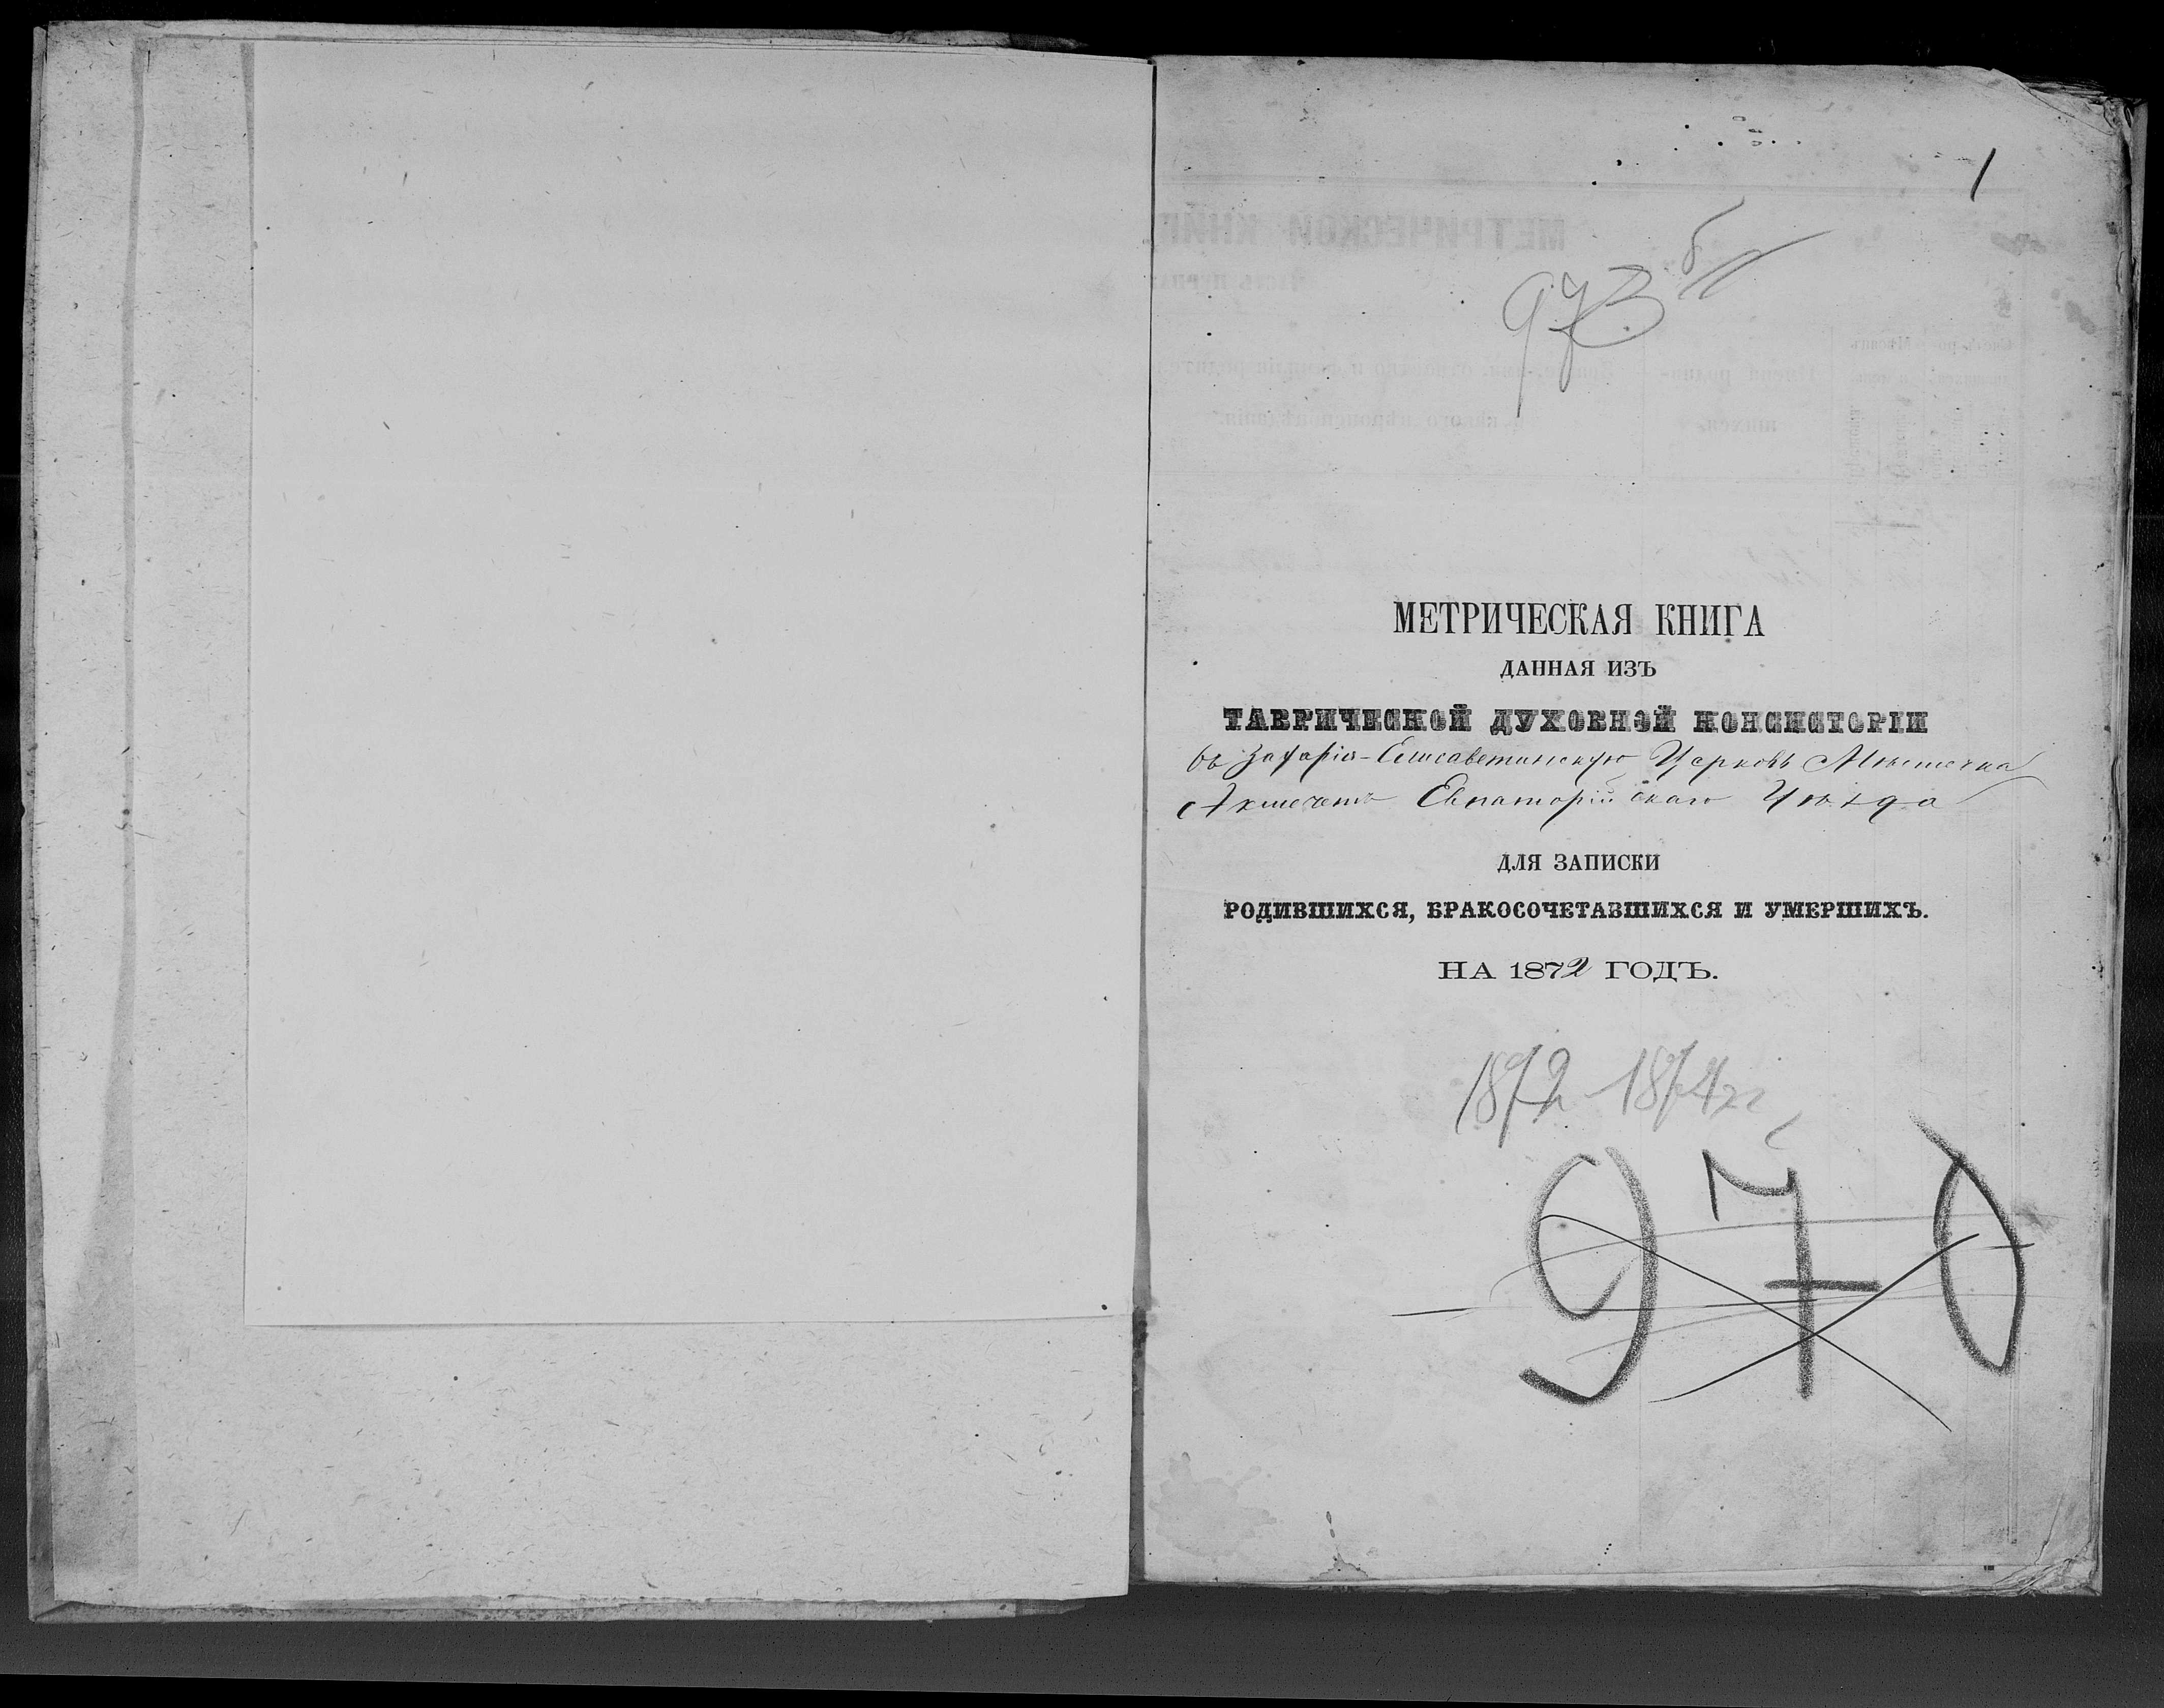 1
973 б/
МЕТРИЧЕСКАЯ КНИГА
ДАННАЯ ИЗЪ
ТАВРИЧЕСКОЙ ДУХОВНОЙ КОНСИСТОРІИ
въ Захаріе-Елисаветинскую Церковь Мѣстечка
Акмечеть Евпаторійскаго Уѣзда
ДЛЯ ЗАПИСКИ
РОДИВШИХСЯ, БРАКОСОЧЕТАВШИХСЯ И УМЕРШИХЪ.
НА 1872 ГОДЪ.
1872-1874гг
970